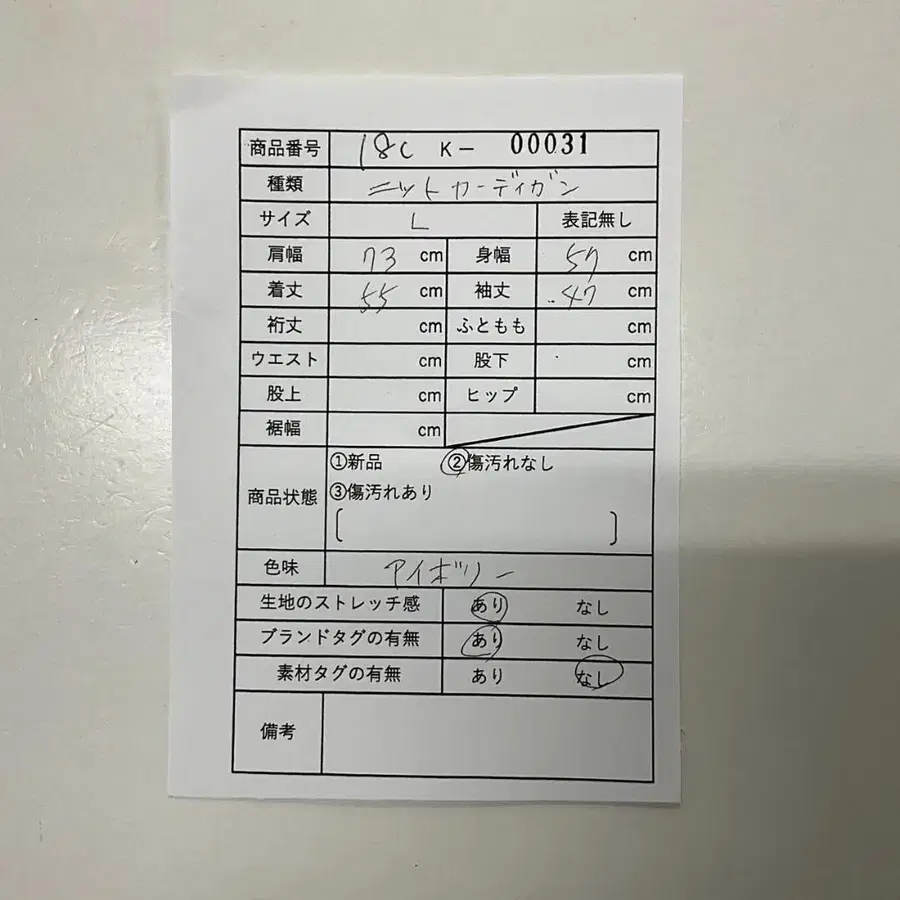 商品番号 18C K- 00031
種類 ニットカーディガン
サイズ L 表記無し
肩幅 73 cm 身幅 57 cm
着丈 55 cm 袖丈 47 cm
裄丈 cm ふともも cm
ウエスト cm 股下 cm
股上 cm ヒップ cm
裾幅 cm
①新品 ②傷汚れなし
商品状態 ③傷汚れあり
[ ]
色味 アイボリー
生地のストレッチ感 あり なし
ブランドタグの有無 あり なし
素材タグの有無 あり なし
備考